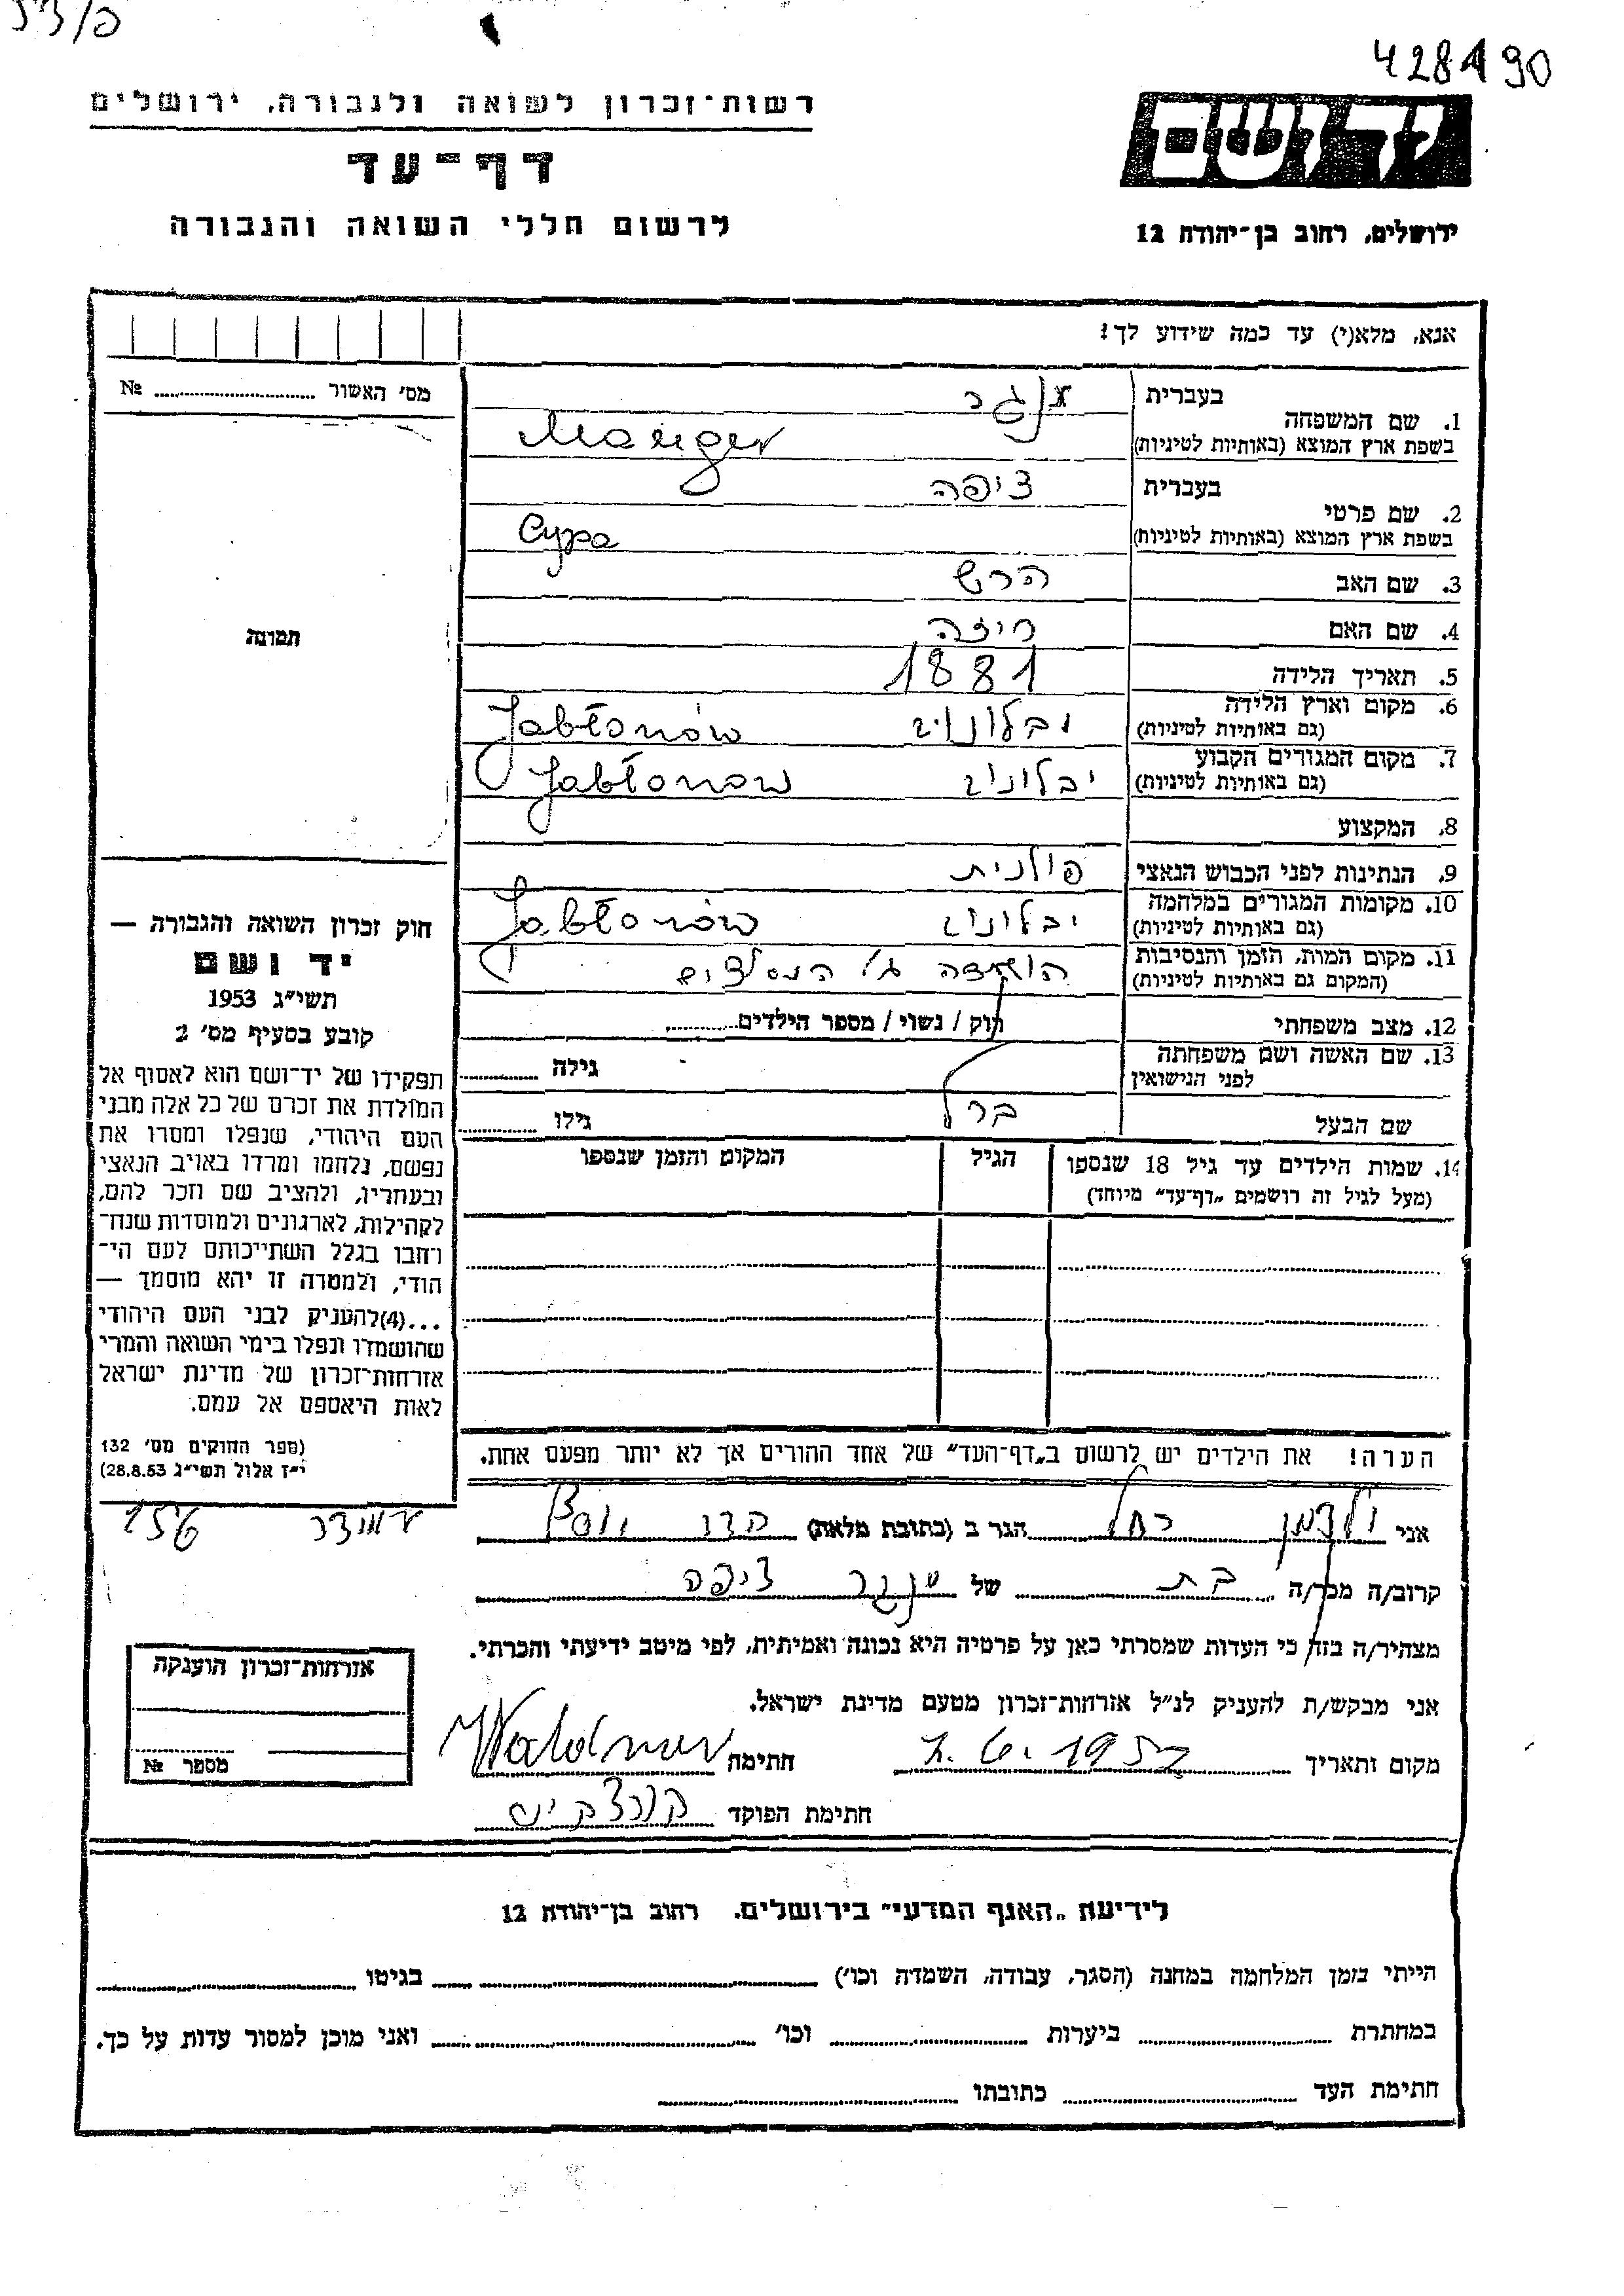 428490
רשות־זכרון לשואה ולגבורה, ירושלים
דף־עד
לרשום חללי השואה והגבורה
יד ושם
ירושלים, רחוב בן־יהודה 12
אנא, מלא(י) עד כמה שידוע לך:
מס' האשור № 
1. שם המשפחה
בעברית מנגר
בשפת ארץ המוצא (באותיות לטיניות) Manger
2. שם פרטי
בעברית ציפה
בשפת ארץ המוצא (באותיות לטיניות) Cypa
3. שם האב הרש
4. שם האם
5. תאריך הלידה 1881
6. מקום וארץ הלידה (גם באותיות לטיניות) יבלונוב Jabłonów
7. מקום המגורים הקבוע (גם באותיות לטיניות) יבלונוב Jabłonow
8. המקצוע
9. הנתינות לפני הכבוש הנאצי פולנית
10. מקומות המגורים במלחמה (גם באותיות לטיניות) יבלונוב Jabłonów
11. מקום המות, הזמן והנסיבות (המקום גם באותיות לטיניות)
12. מצב משפחתי רוק / נשוי / מספר הילדים
13. שם האשה ושם משפחתה לפני הנישואין גילה
שם הבעל ברל גילו
14. שמות הילדים עד גיל 18 שנספו (מעל לגיל זה רושמים "דף־עד" מיוחד) הגיל המקום והזמן שנספו
הערה! את הילדים יש לרשום ב"דף־העד" של אחד ההורים אך לא יותר מפעם אחת.
תמונה
חוק זכרון השואה והגבורה —
יד ושם
תשי"ג 1953
קובע בסעיף מס' 2
תפקידו של יד־ושם הוא לאסוף אל
המולדת את זכרם של כל אלה מבני
העם היהודי, שנפלו ומסרו את
נפשם, נלחמו ומרדו באויב הנאצי
ובעוזריו, ולהציב שם וזכר להם,
לקהילות, לארגונים ולמוסדות שנח־
רבו בגלל השתייכותם לעם הי־
הודי, ולמטרה זו יהא מוסמך —
...(4)להעניק לבני העם היהודי
שהושמדו ונפלו בימי השואה והמרי
אזרחות־זכרון של מדינת ישראל
לאות היאספם אל עמם.
(ספר החוקים מס' 132
י"ז אלול תשי"ג 28.8.53)
אני ולדמן רחל הגר ב (כתובת מלאה) 156
קרוב/ה מכר/ה בת של מנגר ציפה
מצהיר/ה בזה כי העדות שמסרתי כאן על פרטיה היא נכונה ואמיתית, לפי מיטב ידיעתי והכרתי.
אני מבקש/ת להעניק לנ"ל אזרחות־זכרון מטעם מדינת ישראל.
מקום ותאריך 7.6.1957 חתימה Waldman
חתימת הפוקד
אזרחות־זכרון הוענקה
מספר №
לידיעת "האגף המדעי" בירושלים. רחוב בן־יהודה 12
הייתי בזמן המלחמה במחנה (הסגר, עבודה, השמדה וכו') בגיטו
במחתרת ביערות וכו' ואני מוכן למסור עדות על כך.
חתימת העד כתובתו